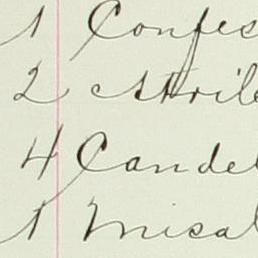 1 Confes
2 Atril
4 Candel
1 Misal